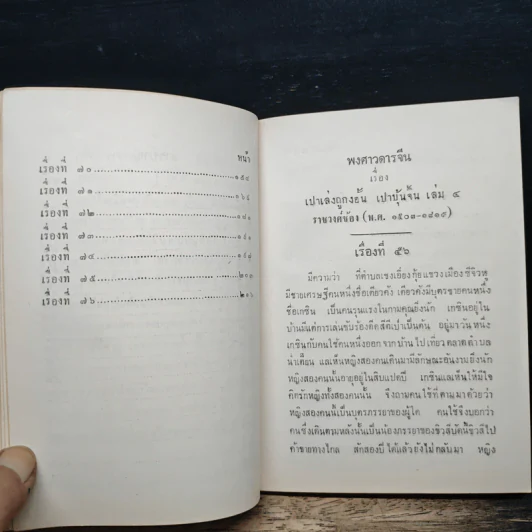 หน้า
เรื่องที่ ๗๐
เรื่องที่ ๗๑
เรื่องที่ ๗๒
เรื่องที่ ๗๓
เรื่องที่ ๗๔
เรื่องที่ ๗๕
เรื่องที่ ๗๖
พงศาวดารจีน
เรื่อง
เปาเล่งถูกงอั้น เปาบุ้นจิ้น เล่ม ๔
ราชวงศ์ซ้อง (พ.ศ. ๑๕๐๓-๑๘๑๙)
เรื่องที่ ๕๖
มีความว่า ที่ตำบลแขงเยี่ยงกุ้ยแขวงเมืองซีจิวหู
มีชายเศรษฐีคนหนึ่งชื่อเคียวคัง เคียวคังมีบุตรชายคนหนึ่ง
ชื่อเกซิน เป็นคนรุนแรงในกามคุณยิ่งนัก เกซินอยู่ใน
บ้านมีแต่การเล่นขับร้องดีดสีตีเป่าเป็นต้น อยู่มาวันหนึ่ง
เกซินกับคนใช้คนหนึ่งออกจากบ้านไปเที่ยวตลาดตำบล
และเห็นหญิงสองคนเดินมามีลักษณะอันงามยิ่งนัก
หญิงสองคนนั้นอายุอยู่ในสิบแปดปี เกซินแลเห็นให้มีใจ
คิดรักหญิงทั้งสองคนนั้น จึงถามคนใช้ที่ตามมาด้วยว่า
หญิงสองคนนี้เป็นบุตรภรรยาของผู้ใด คนใช้จึงบอกว่า
คนซึ่งเดินตามหลังนั้นเป็นน้องภรรยาของชิวสีบัดนี้ชิวสีไป
ค้าขายทางไกล สักสองปีได้แล้วยังไม่กลับมา หญิง